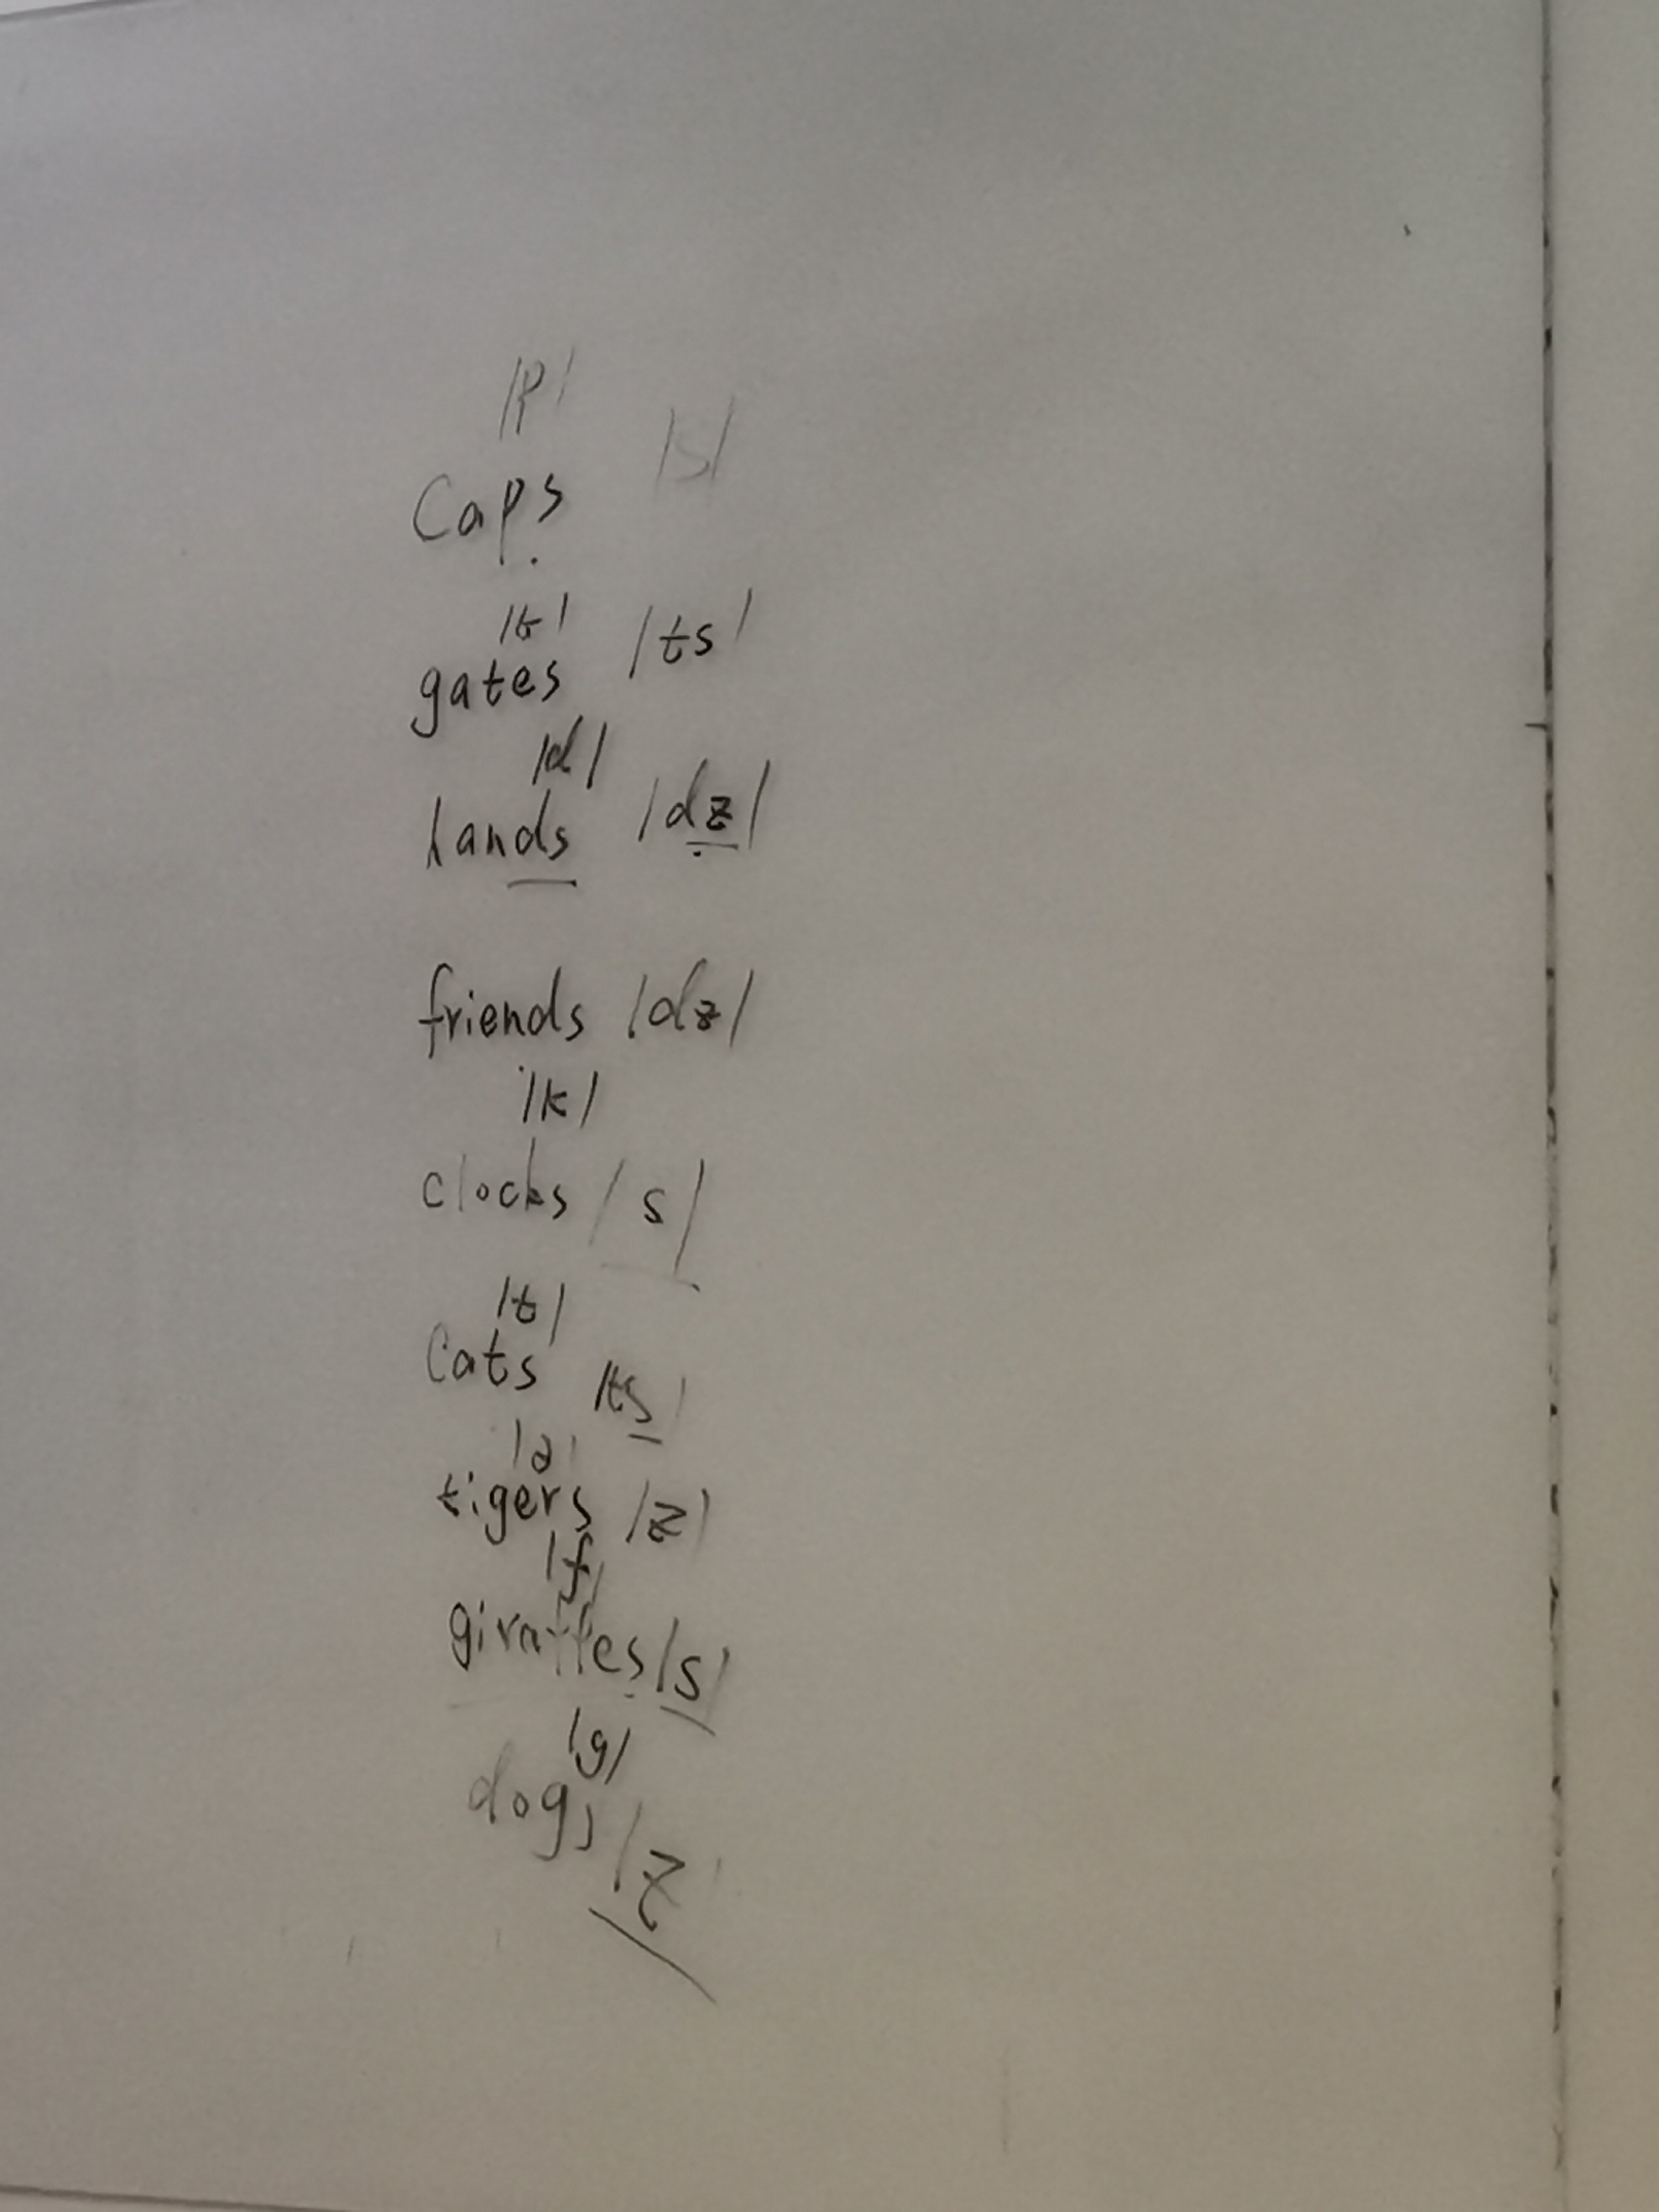 /p/
Caps /s/
/t/
gates /ts/
/d/
hands /dz/
friends /dz/
/k/
clocks /s/
/t/
Cats /ts/
/ə/
tigers /z/
/f/
giraffes /s/
/g/
dogs /z/